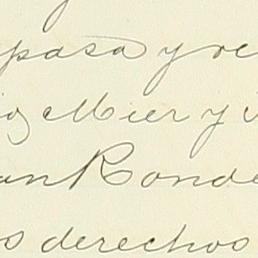 pasa y ve
Mier y
an Ronde
s derechos